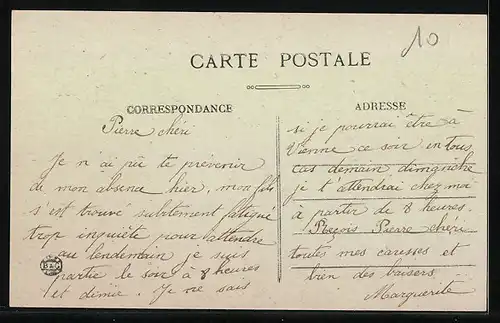 10
CARTE POSTALE
CORRESPONDANCE
Pierre chéri
Je n'ai pû te prévenir
de mon absence hier, mon fils
s'est trouvé subitement fatigué
trop inquiète pour attendre
au lendemain je suis
partie le soir à 8 heures
et dimie. Je ne sais
ADRESSE
si je pourrai être à
Vienne ce soir, en tous
cas demain, dimanche
je t'attendrai chez moi
à partir de 8 heures.
Reçois Pierre chéri
toutes mes caresses et
bien des baisers
Marguerite